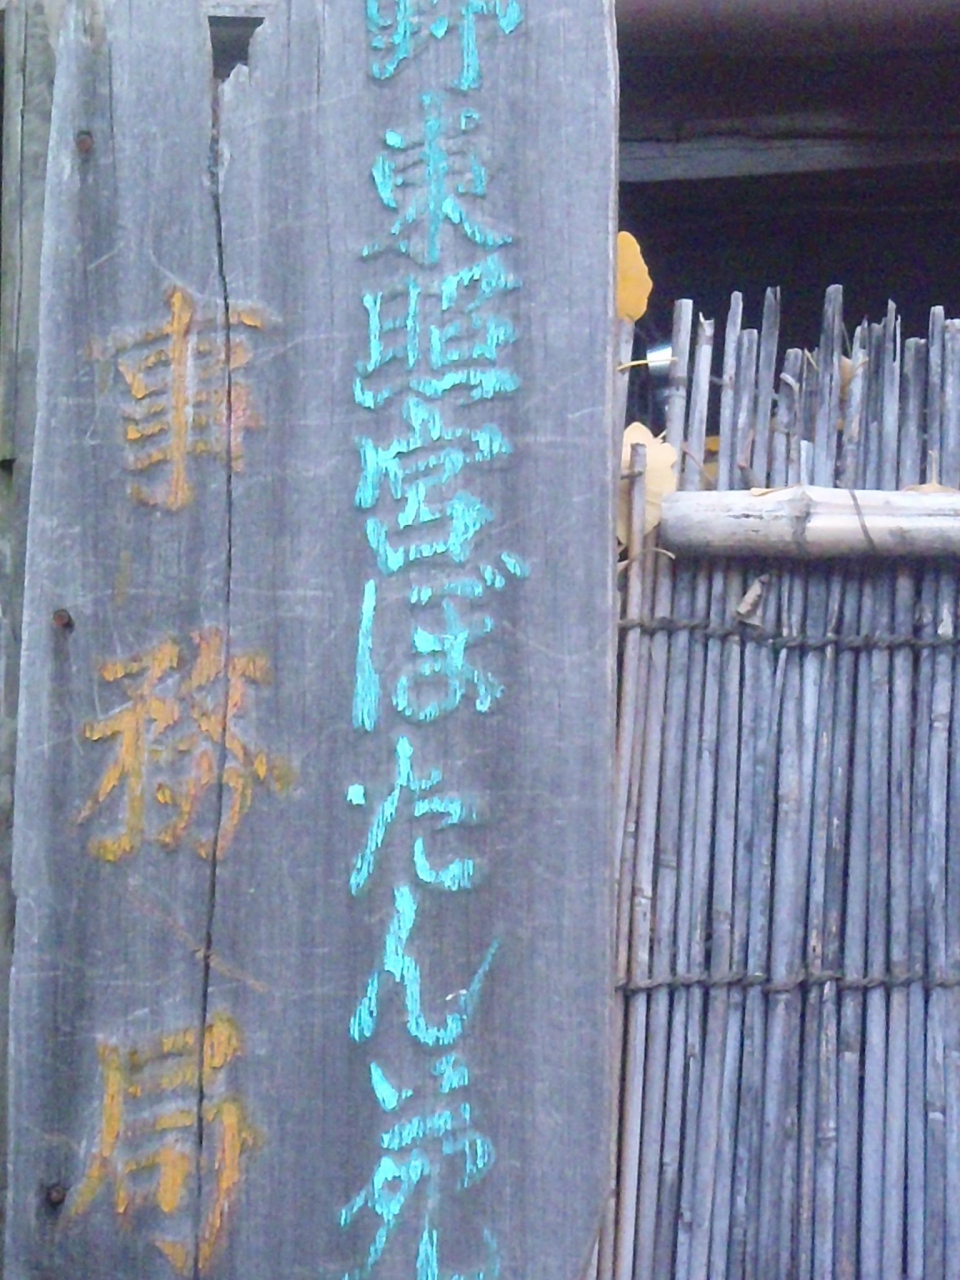 野東照宮ぼたん苑
事務局